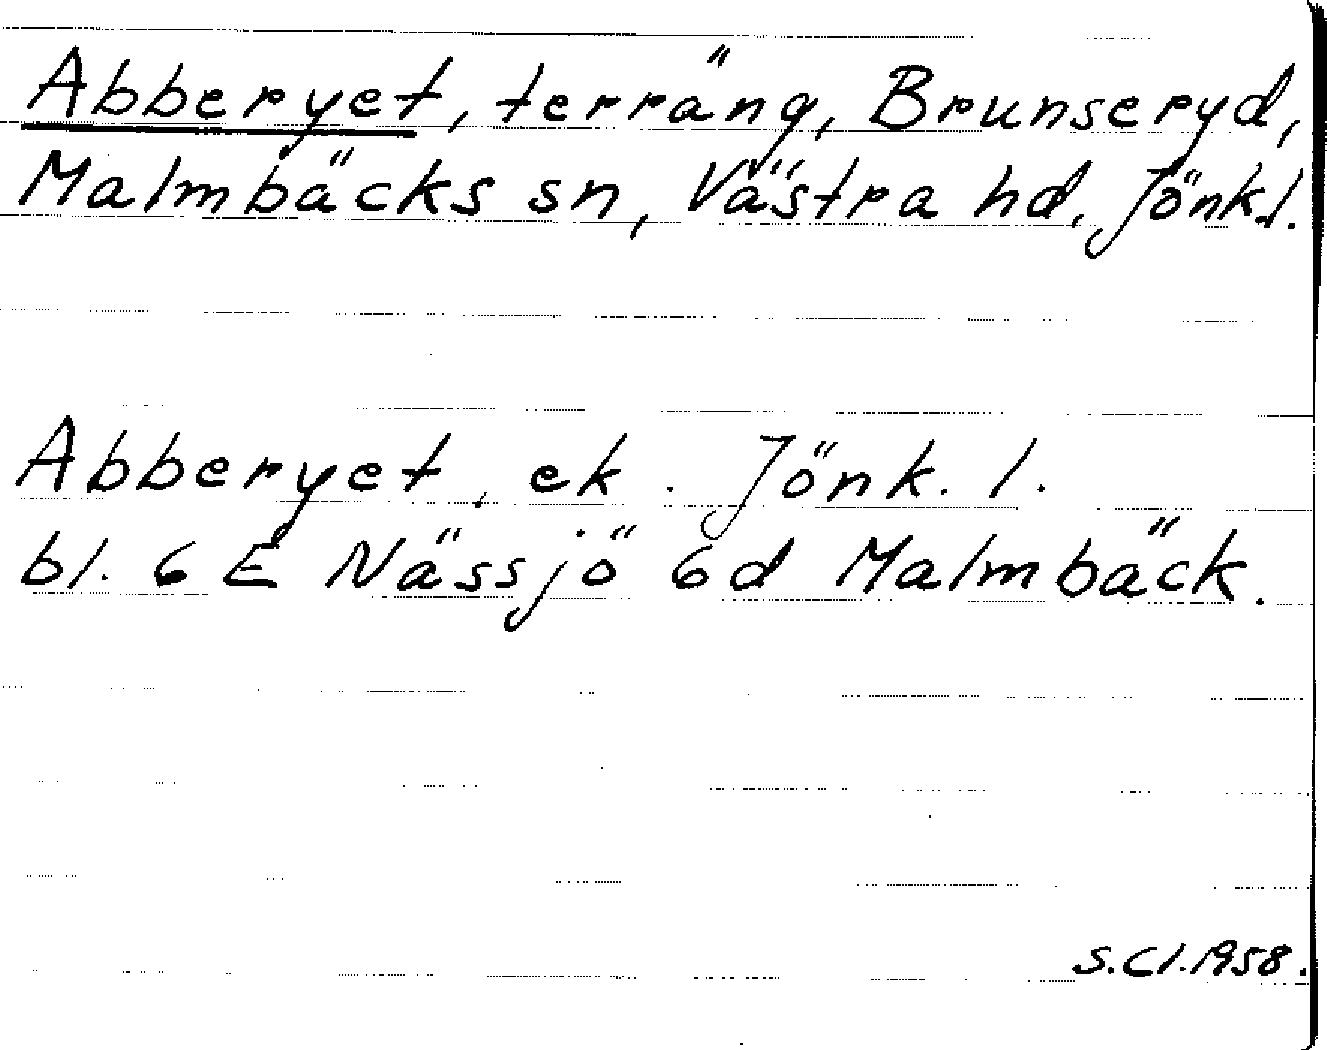 Abberyet, terräng, Brunseryd,
Malmbäcks sn, Västra hd. Jönk.l.
Abberyet, ek. Jönk. l.
bl. 6 E Nässjö 6d Malmbäck.
S.Cl.1958.